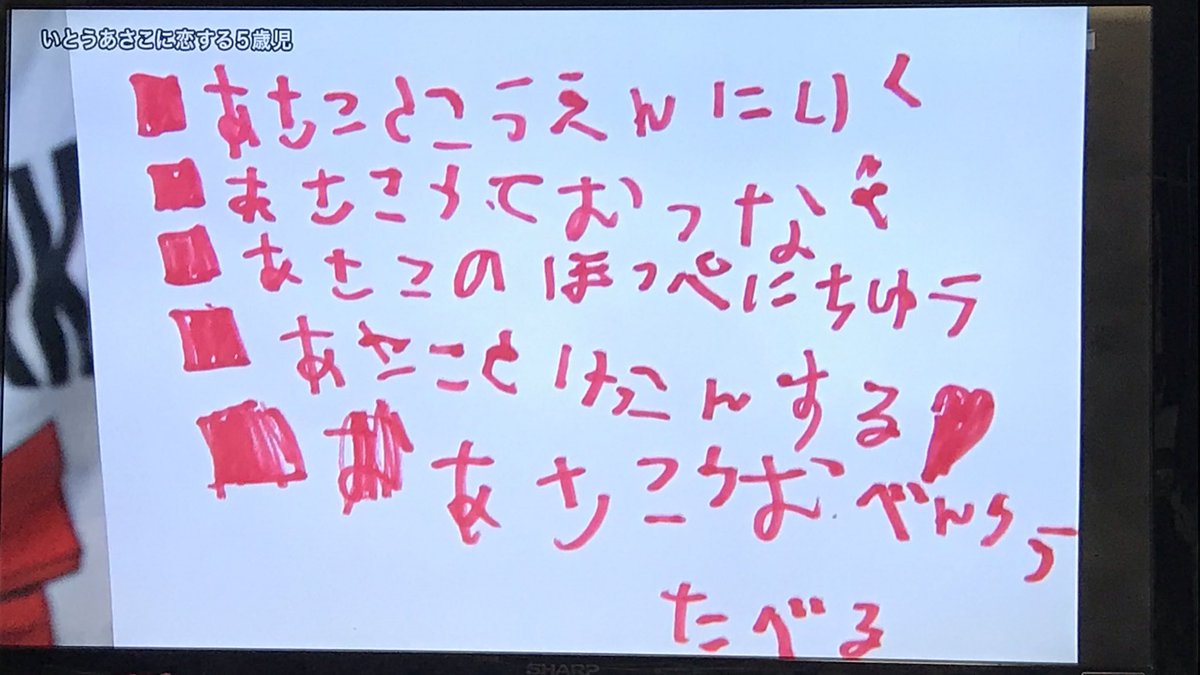 いとうあさこに恋する5歳児
あさことこうえんにいく
あさことておつなぐ
あさこのほっぺにちゅう
あさことけっこんする♥
あさことおべんとう
たべる
SHARP